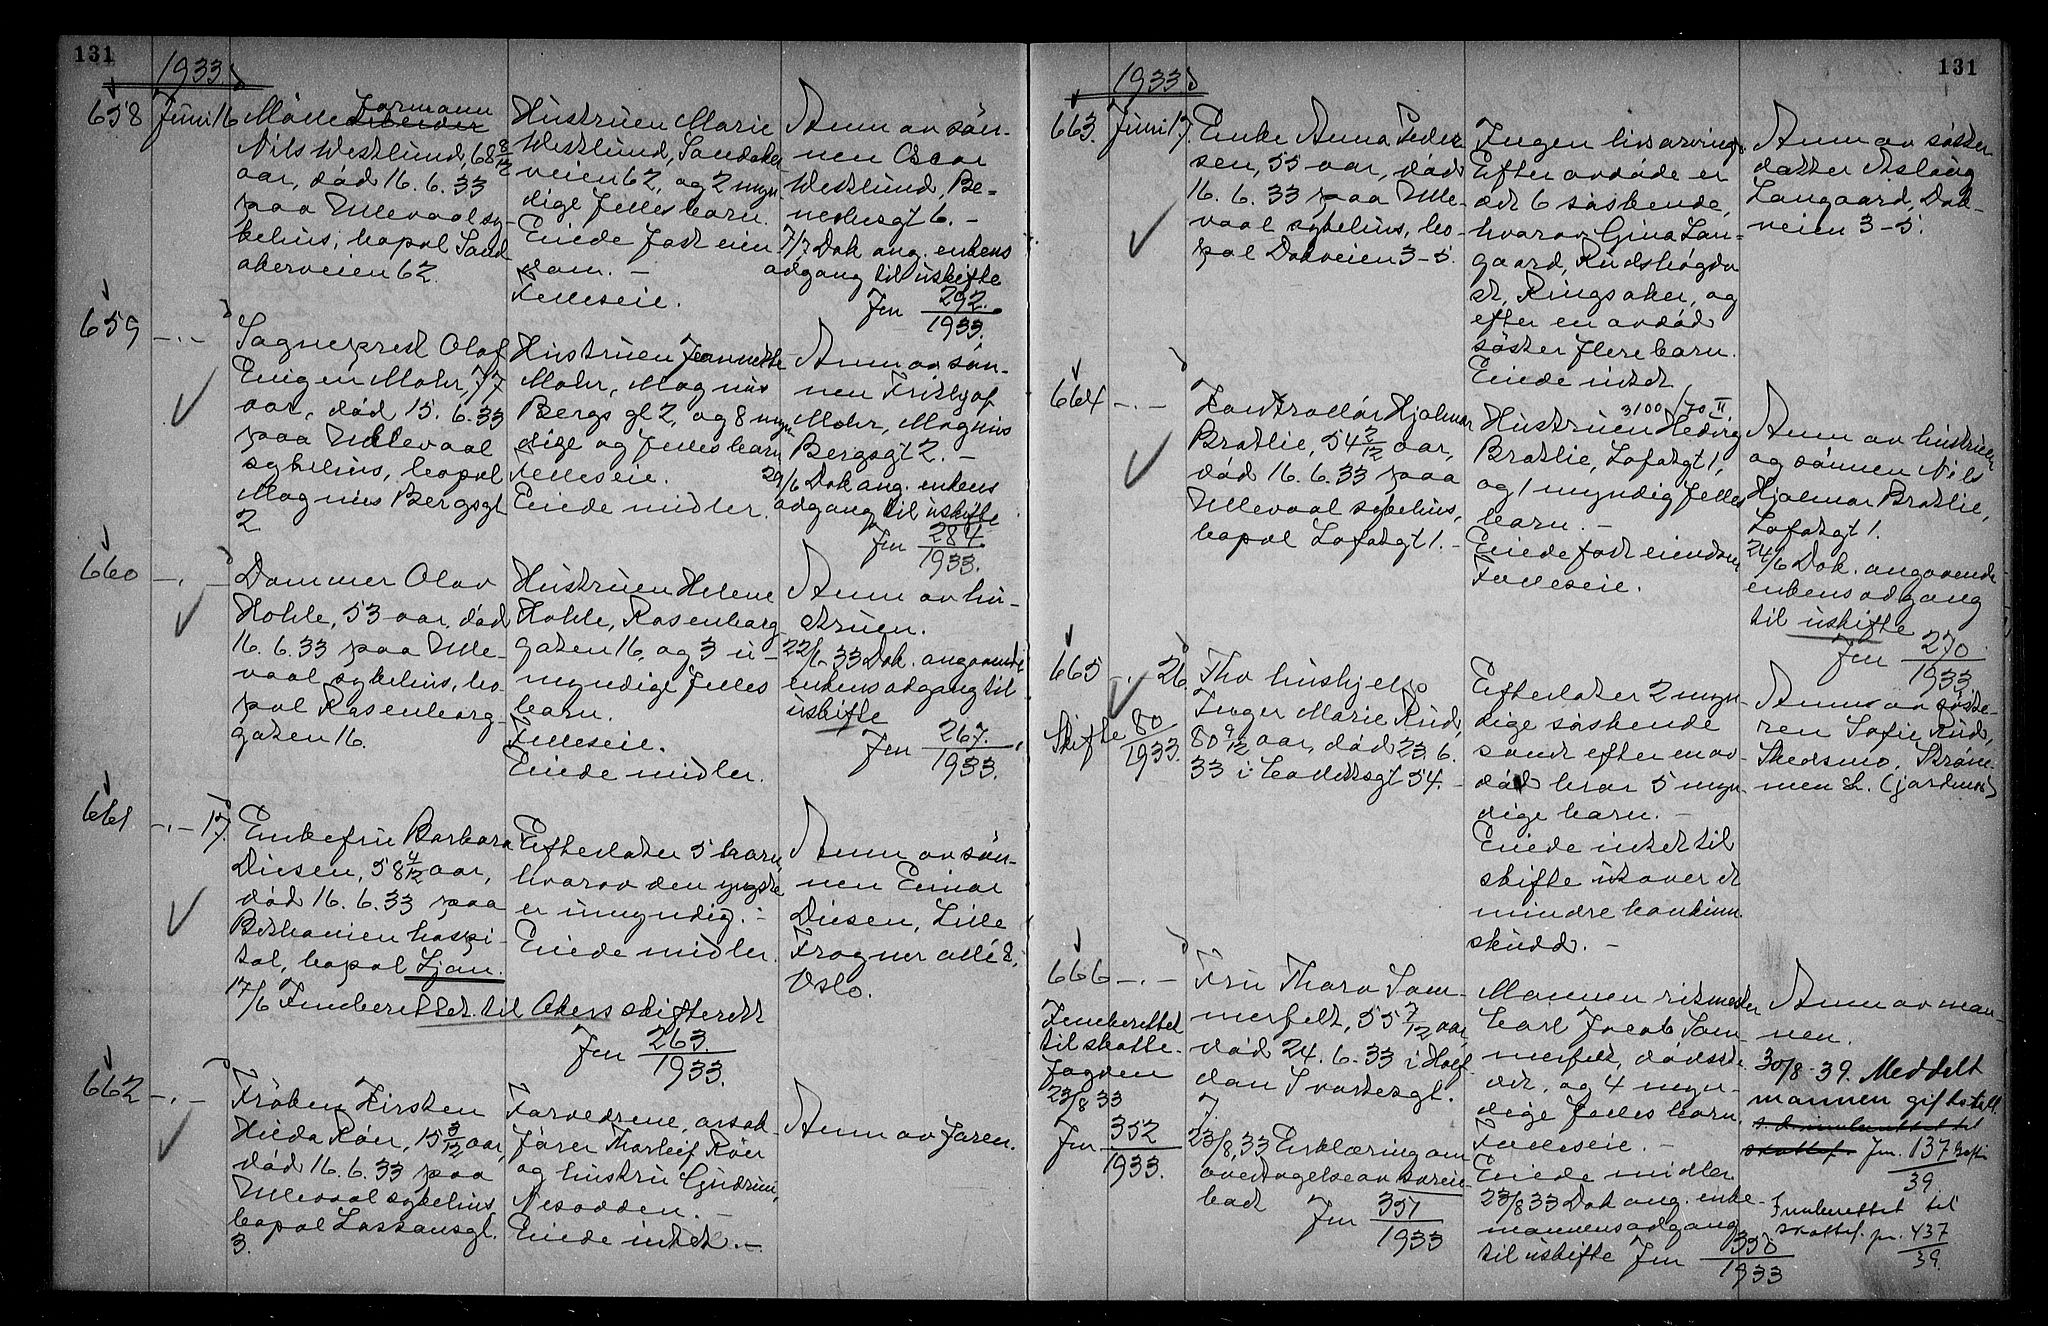 131
1933.
658 Juni 16
Möllerformann
Nils Westlund, 68 8/12
aar, död 16.6.33
paa Ullevaal sy-
kehus, bopæl Sand
akerveien 62.
Hustruen Marie
Westlund, Sandaker
veien 62, og 2 myn
dige fellesbarn.
Eiede fast eien
dom. –
Felleseie.
Anm av søn-
nen Oscar
Westlund, Be-
nedusgt 6. –
7/7 Dok ang. enkens
adgang til uskifte
Jnr 292.
1933.
659 –.–
Sogneprest Olaf
Eugen Mohr, 77
aar, død 15.6.33
paa Ullevaal
sykehus, bopæl
Magnus Bergsgt
2
Hustruen Jeannette
Mohr, Magnus
Bergs gt 2, og 8 myn
dige og fellesbarn
Felleseie.
Eiede midler.
Anm av søn-
nen Frithjof
Mohr, Magnus
Bergsgt 2. –
29/6 Dok ang. enkens
adgang til uskifte
Jnr 284
1933.
660 –.–
Dommer Olav
Hohle, 53 aar, død
16.6.33 paa Ulle-
vaal sykehus, bo-
pæl Rosenborg-
gaten 16.
Hustruen Helene
Hohle, Rosenborg-
gaten 16, og 3 u-
myndige felles
barn.
Felleseie.
Eiede midler.
Anm av hu-
struen.
22/6 33 Dok. angaaende
enkens adgang til
uskifte
Jnr 267.
1933.
661 –.– 17.
Enkefru Barbara
Diesen, 58 4/12 aar,
død 16.6.33 paa
Bethanien hospi-
tal, bopæl Ljan.
Efterlater 5 barn,
hvorav den yngste
er umyndig. –
Eiede midler.
Anm av søn-
nen Einar
Diesen, Lille
Frogner allé 8,
Oslo.
17/6 Innberettet til Akers skifterett
Jnr 263.
1933.
662 –.–
Frøken Kirsten
Hilda Röer, 15 3/12 aar,
død 16.6.33 paa
Ullevaal sykehus,
bopæl Lassonsgt.
3.
Forældrene, arsak-
fører Thorleif Röer
og hustru Gudrun,
Nesodden. –
Eiede intet. –
Anm av faren.
131
1933.
663. Juni 17.
Enke Anna Peder
sen, 55 aar, død
16.6.33 paa Ulle-
vaal sykehus, bo-
pæl Dokveien 3-5.
Ingen livsarving.
Efter avdøde er
det 6 søskende,
hvorav Gina Lan-
gaard, Rudshøgda
st, Ringsaker, og
efter en avdød
søster flere barn.
Eiede intet
Anm av søster
datter Aslaug
Langaard, Dok-
veien 3-5.
664 –.–
Kontrollør Hjalmar
Bratlie, 54 2/12 aar,
død 16.6.33 paa
Ullevaal sykehus,
bopæl Lofotgt 1. –
3100/70 II
Hustruen Hedvig
Bratlie, Lofotgt 1,
og 1 myndig felles
barn. –
Eiede fast eiendom
Felleseie.
Anm av hustruen
og sønnen Nils
Hjalmar Bratlie,
Lofotgt 1.
24/6 Dok. angaaende
enkens adgang
til uskifte
Jnr 270.
1933.
665 –.– 26.
Skifte 80
1933.
Fhv hushjelp
Inger Marie Rud,
80 9/12 aar, død 23.6.
33 i Cadettsgt 54. –
Efterlater 2 myn-
dige søskende
samt efter en av-
død bror 5 myn-
dige barn. –
Eiede intet til
skifte utover et
mindre bankinn-
skudd. –
Anm av søste-
ren Sofie Rud,
Skedsmo, Strøm-
men st. (jordmor)
666 –.–
Innberettet
til skatte-
fogden
23/8 33
Jnr 352
1933.
Fru Thora Som-
merfelt, 55 7/12 aar,
død 24.6.33 i Half-
dan Svartesgt.
7.
23/8 33 Erklæring om
overtagelse av
Jnr 351
1933
Mannen ritmester
Carl Jacob Som
merfelt, dødsste-
det, og 4 myn-
dige fellesbarn.
Felleseie –
Eiede midler
23/8 33 Dok ang. enke-
mannens adgang
til uskifte Jnr 350
1933
Anm av man-
nen.
30/8-39. Meddelt
mannen giftstill.
s.d. innberettet til
skattef. Jnr. 137
39.
Innberettet til
skattef. jnr. 437
39.